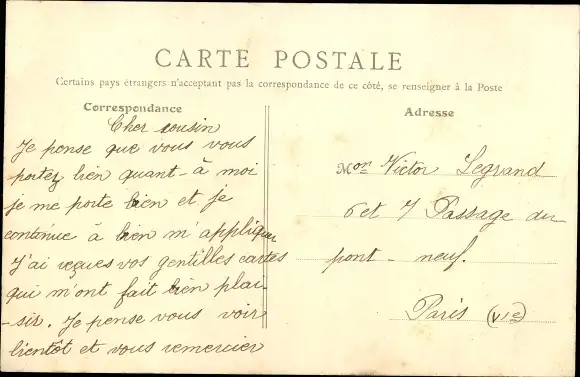 CARTE POSTALE
Certains pays étrangers n'acceptent pas la correspondance de ce côté, se renseigner à la Poste
Correspondance
Cher cousin
Je pense que vous vous
portez bien quant-à moi
je me porte bien et je
continue à bien m appliquer
J'ai reçues vos gentilles cartes
qui m'ont fait bien plai-
-sir. Je pense vous voir
bientôt et vous remercier
Adresse
Mon Victor Legrand
6 et 7 Passage du
pont-neuf.
Paris (VIe)